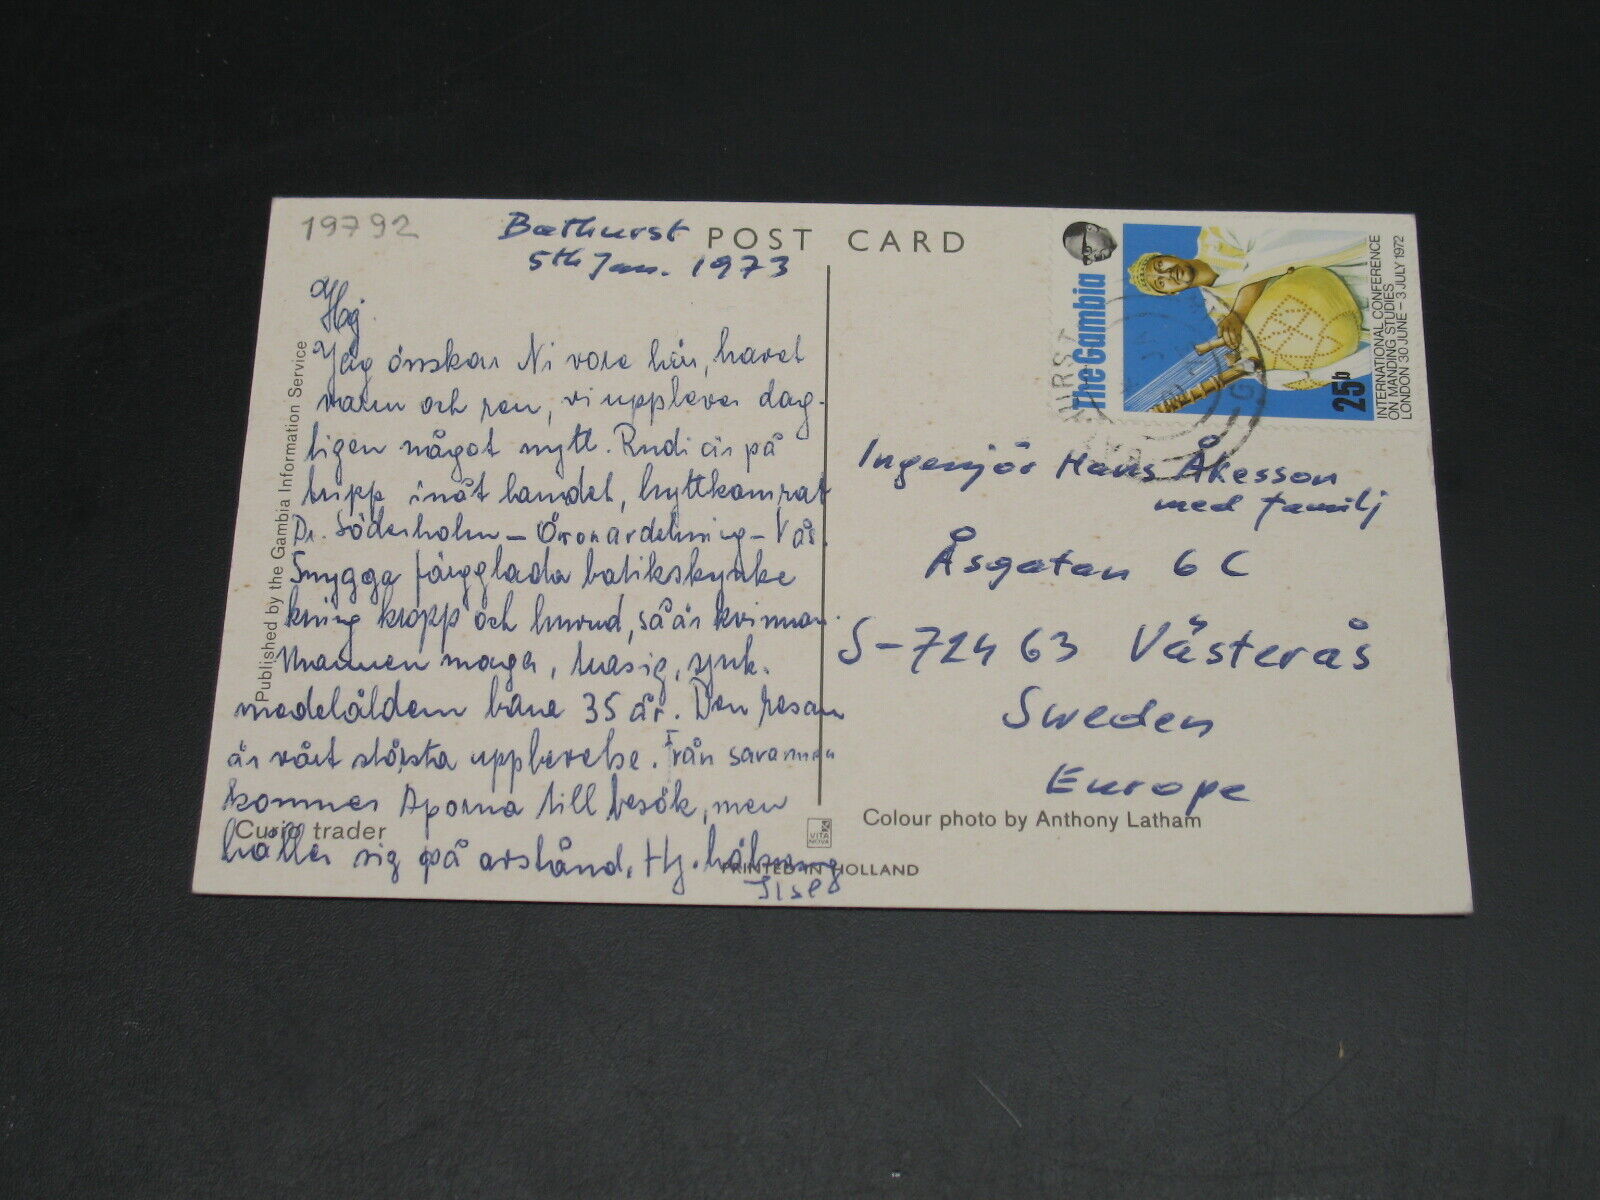 19792
Bathurst
5th Jan. 1973
POST CARD
Hej
Jag önskar Ni vore här, havet
varm och ren, vi upplever dag-
ligen något nytt. Rudi är på
tripp inåt landet, hyttkamrat
Dr. Söderholm - Öronavdelning - Vås.
Snygga färgglada batikskynke
kring kropp och huvud, så är kvinnan.
Mannen mager, trasig, sjuk.
medelåldern bara 35 år. Den resan
är vårt största upplevelse. Från savannen
kommer Aporna till besök, men
håller sig på avstånd. Hj.
Ilse
Published by the Gambia Information Service
Curio trader
VITA NOVA
PRINTED IN HOLLAND
Colour photo by Anthony Latham
The Gambia
25b
INTERNATIONAL CONFERENCE
ON MANDING STUDIES
LONDON 30 JUNE - 3 JULY 1972
Ingenjör Hans Åkesson
med familj
Åsgatan 6 C
S-724 63 Västerås
Sweden
Europe